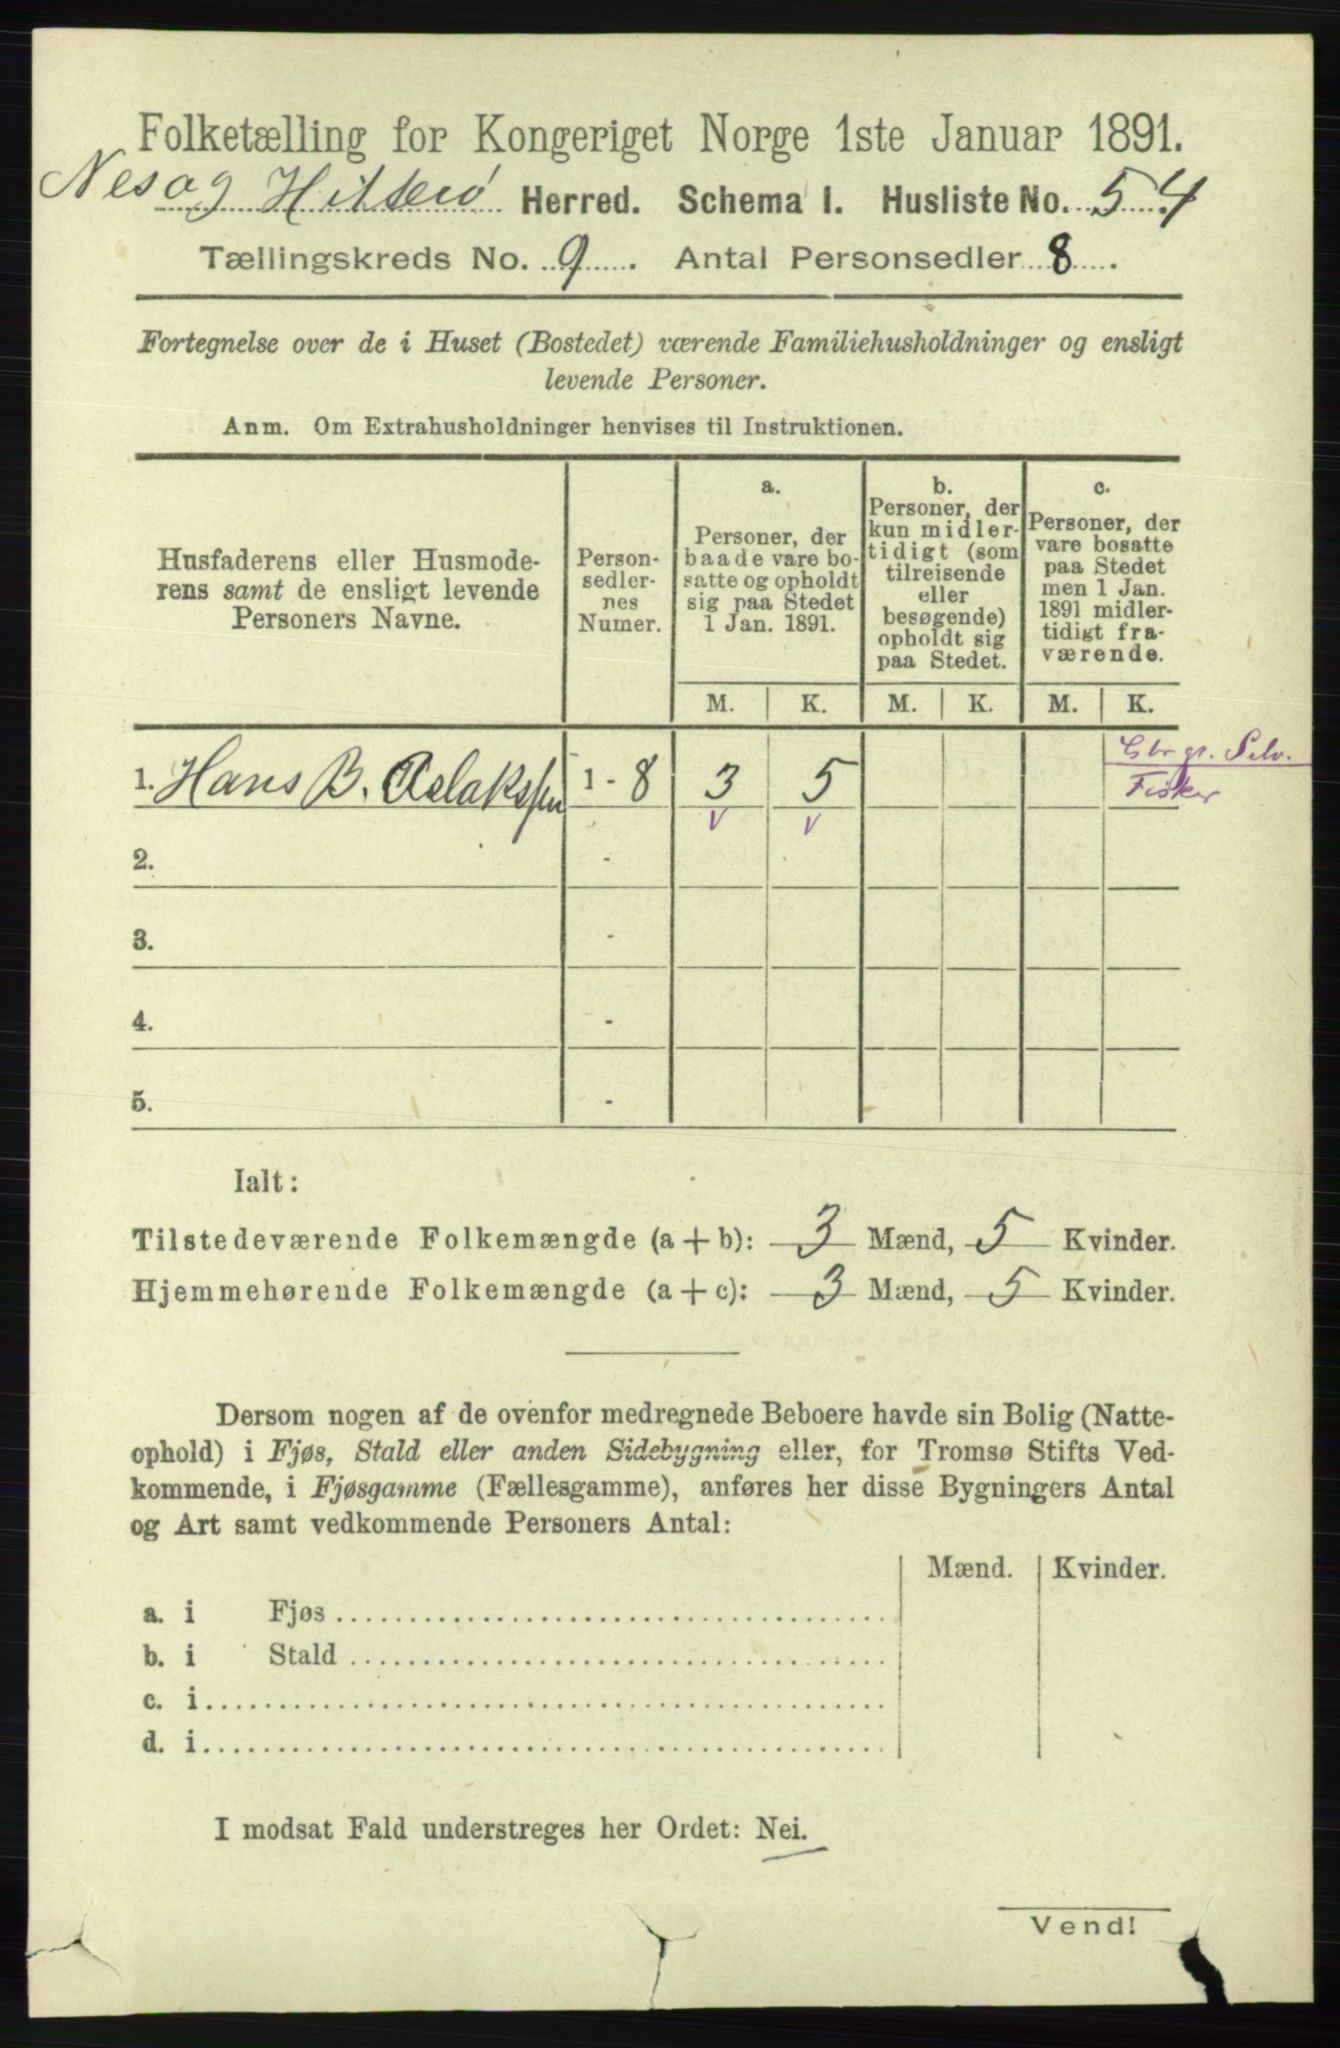 Folketælling for Kongeriget Norge 1ste Januar 1891.
Nes og Hitterø Herred. Schema I. Husliste No. 54
Tællingskreds No. 9. Antal Personsedler 8.
Fortegnelse over de i Huset (Bostedet) værende Familiehusholdninger og ensligt
levende Personer.
Anm. Om Extrahusholdninger henvises til Instruktionen.
Husfaderens eller Husmode-
rens samt de ensligt levende
Personers Navne.
Person-
sedler-
nes
Numer.
a.
Personer, der
baade vare bo-
satte og opholdt
sig paa Stedet
1 Jan. 1891.
b.
Personer, der
kun midler-
tidigt (som
tilreisende
eller
besøgende)
opholdt sig
paa Stedet.
c.
Personer, der
vare bosatte
paa Stedet
men 1 Jan.
1891 midler-
tidigt fra-
værende.
M. K. M. K. M. K.
Gbr gr. Selv.
1. Hans B. Aslaksen 1 - 8 3 5 Fisker
v v
2. -
3. -
4. -
5. -
Ialt:
Tilstedeværende Folkemængde (a + b): 3 Mænd, 5 Kvinder.
Hjemmehørende Folkemængde (a + c): 3 Mænd, 5 Kvinder.
Dersom nogen af de ovenfor medregnede Beboere havde sin Bolig (Natte-
ophold) i Fjøs, Stald eller anden Sidebygning eller, for Tromsø Stifts Ved-
kommende, i Fjøsgamme (Fællesgamme), anføres her disse Bygningers Antal
og Art samt vedkommende Personers Antal:
Mænd. Kvinder.
a. i Fjøs
b. i Stald
c. i
d. i
I modsat Fald understreges her Ordet: Nei.
Vend!